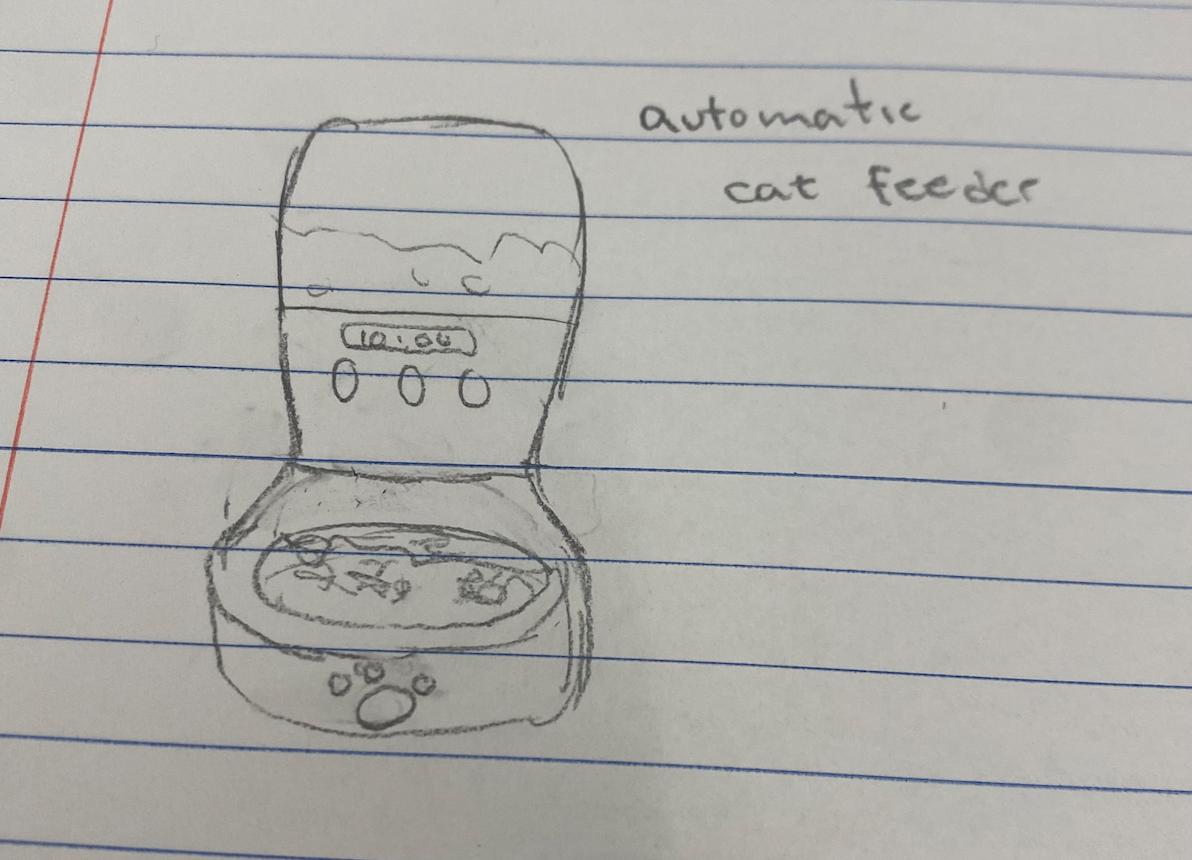 automatic
cat feeder
10:00